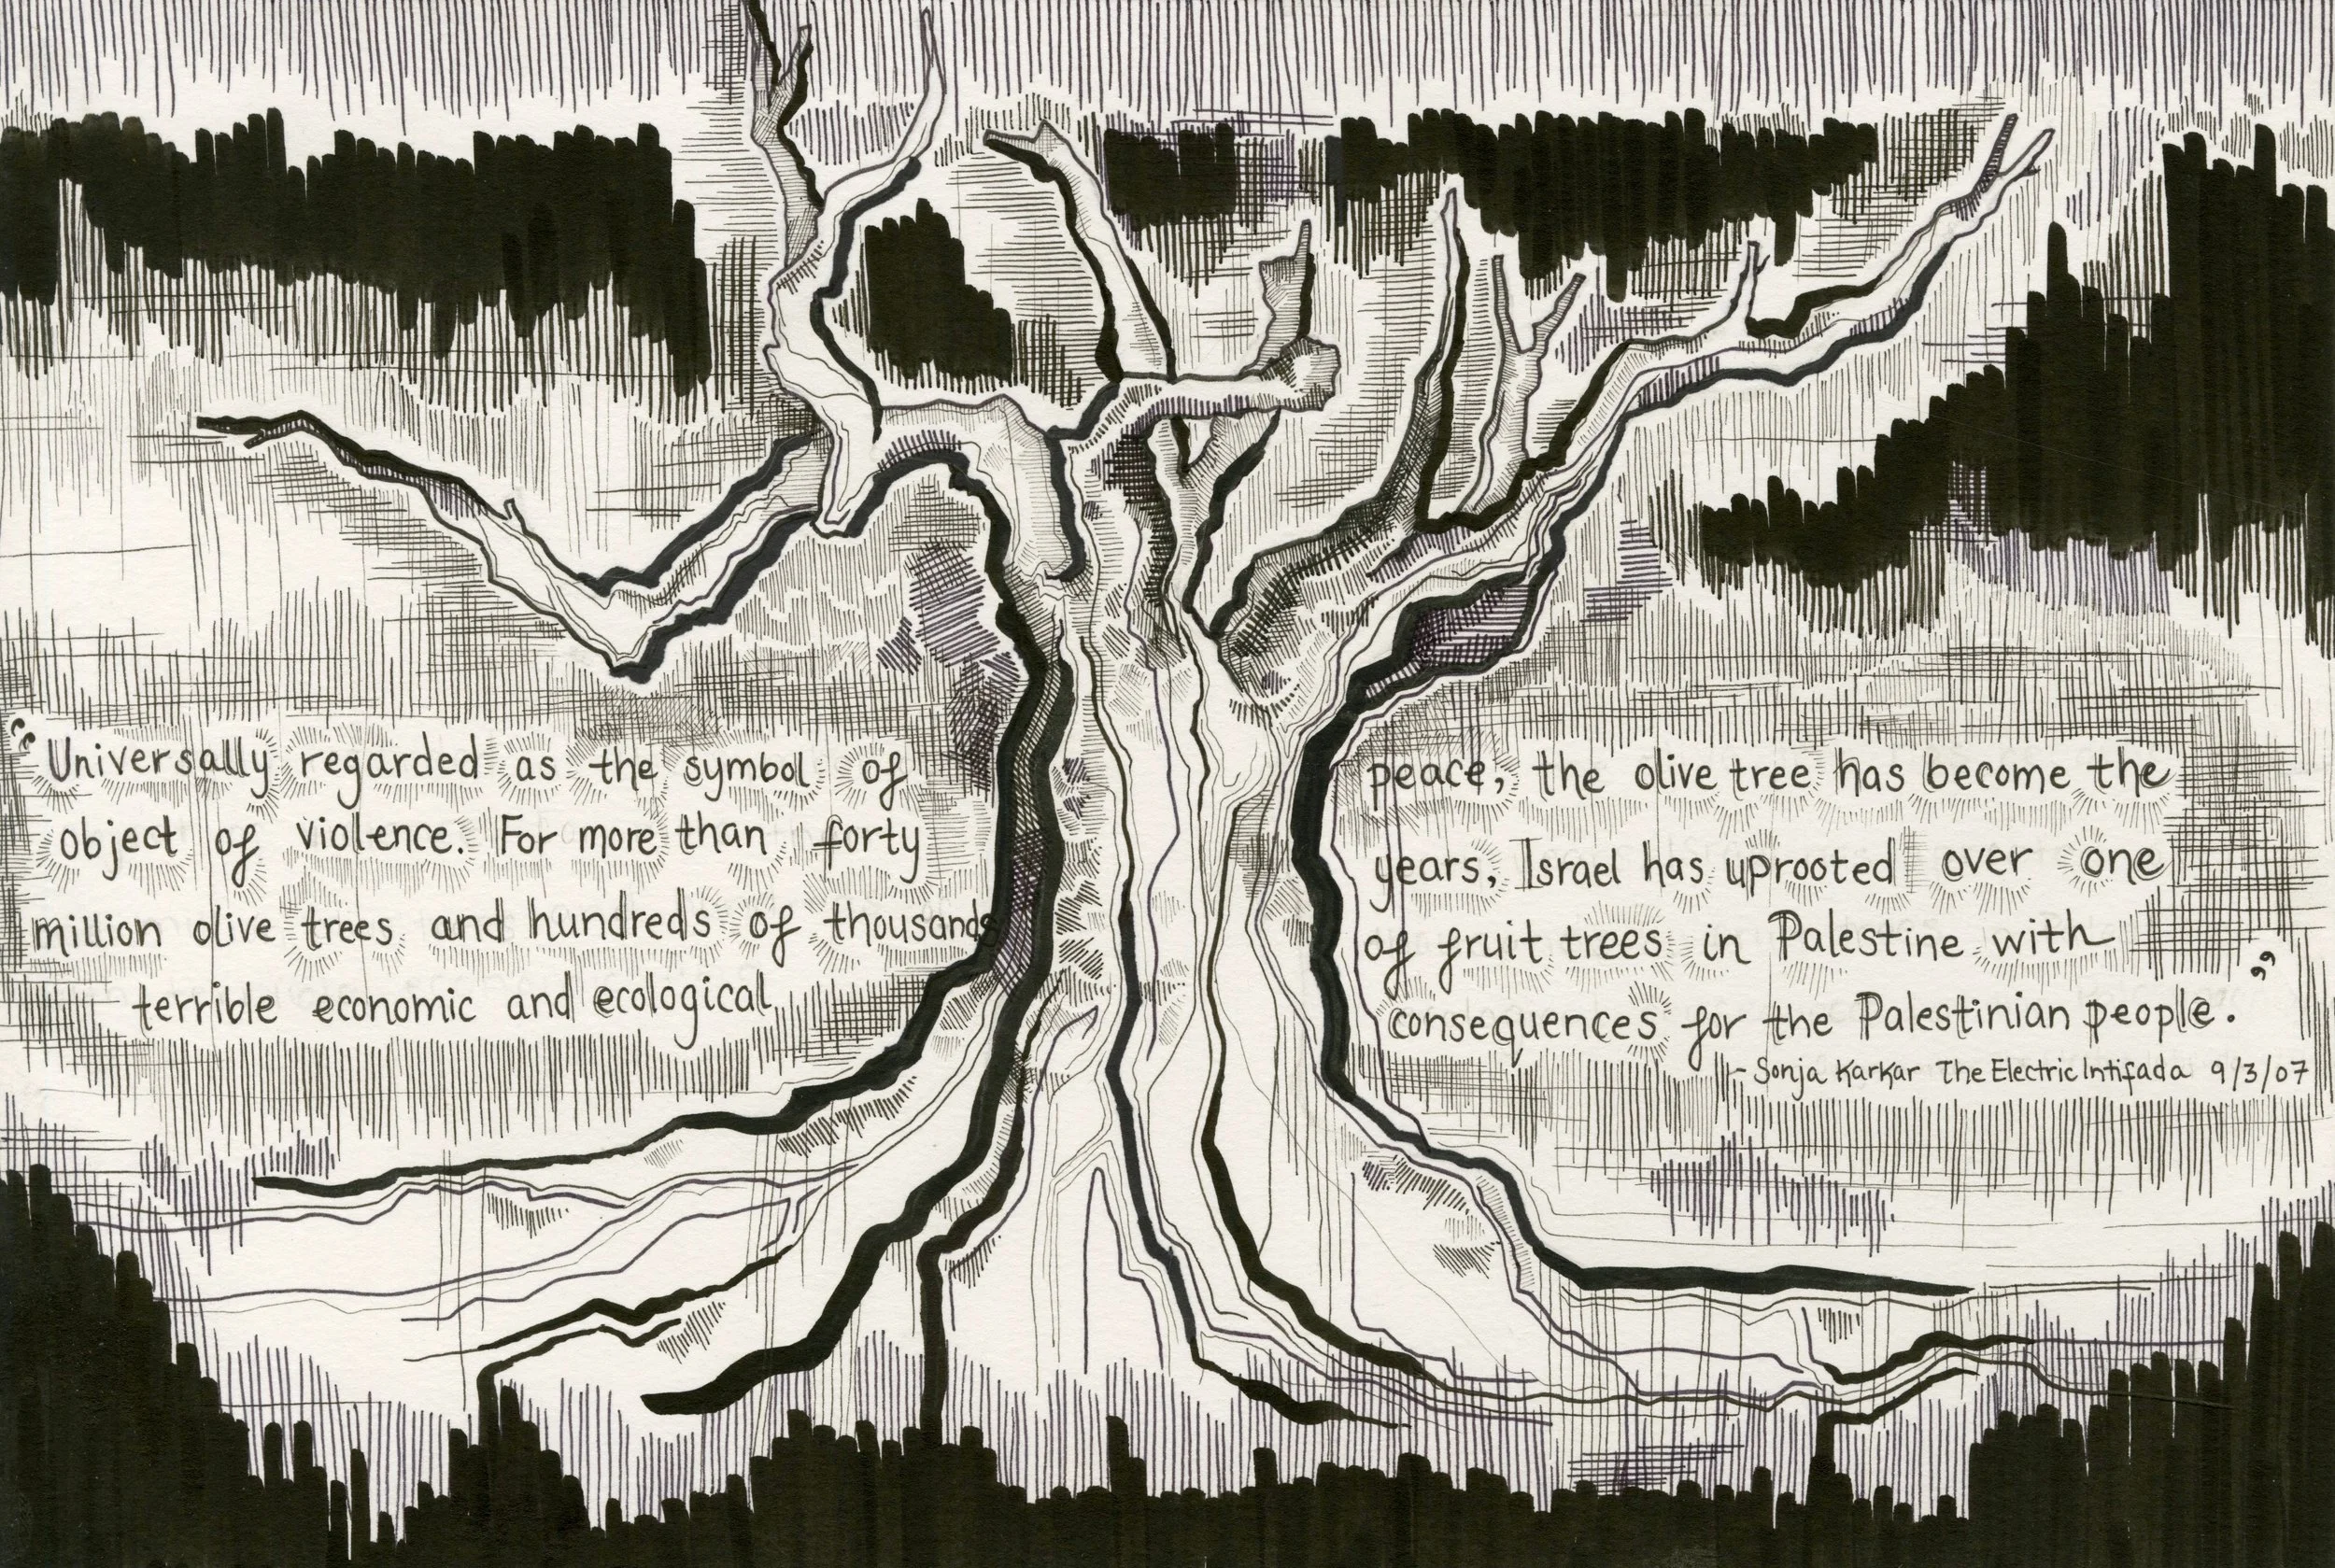 “Universally regarded as the symbol of peace, the olive tree has become the
object of violence. For more than forty years, Israel has uprooted over one
million olive trees and hundreds of thousands of fruit trees in Palestine with
terrible economic and ecological consequences for the Palestinian people.”
- Sonja Karkar The Electric Intifada 9/3/07